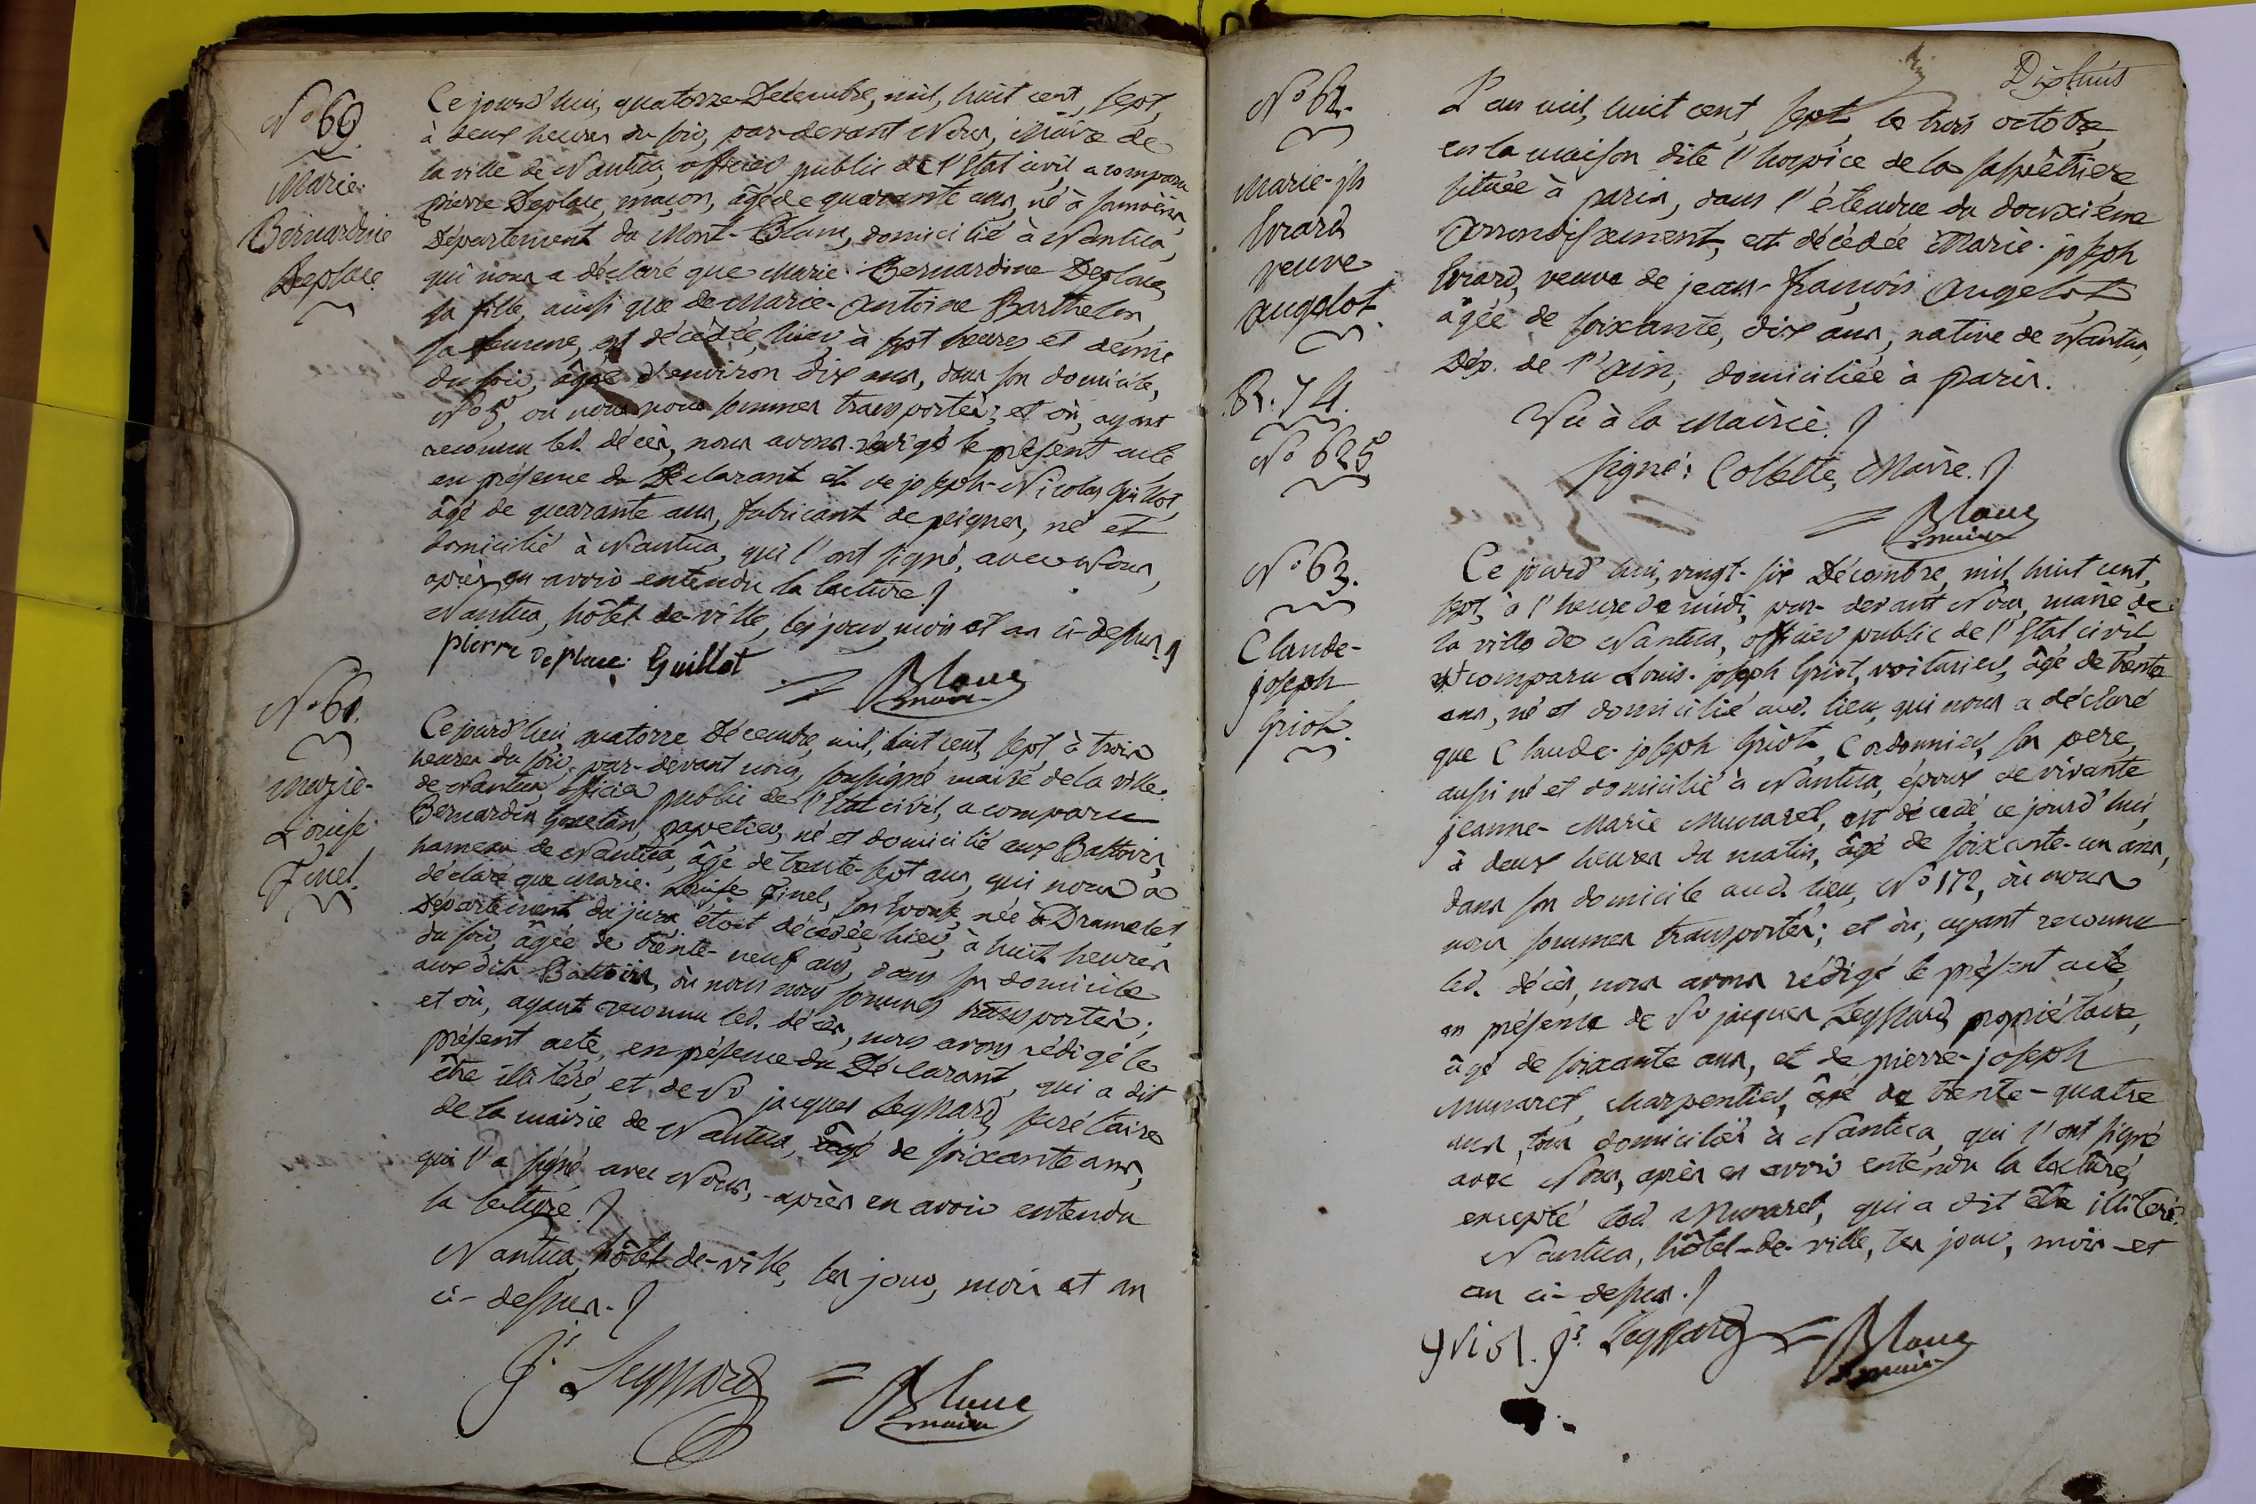 N.o 60.
Marie-
Bernardine
Deplace.
Ce jourd'hui, quatorze Décembre, mil, huit cent, sept,
à deux heures du soir, par-devant Nous, Maire de
la ville de Nantua, officier public de l'Etat civil, a comparu
pierre Deplace, maçon, âgé de quarante ans, né à Samoëns,
Département du Mont-Blanc, domicilié à Nantua,
qui nous a déclaré que Marie-Bernardine Deplace,
sa fille, ainsi que de Marie-antoine Barthelon,
sa femme, est décédée, hier, à sept heures et demie
du soir, âgée d'environ dix ans, dans son domicile,
N.o 5, où nous nous sommes transportés; et où, ayant
reconnu led. décès, nous avons rédigé le présent acte
en présence du Déclarant et de joseph-Nicolas Guillot,
âgé de quarante ans, fabricant de peignes, né et
domicilié à Nantua, qui l'ont signé, avec Nous,
après en avoir entendu la lecture.
Nantua, hôtel-de-ville, les jour, mois et an ci-dessus.
pierre Deplace. Guillot = Blanc
maire
N.o 61.
Marie-
Louise
Finel.
Ce jourd'hui, quatorze Décembre, mil, huit cent, sept, à trois
heures du soir, par-devant nous, soussigné maire de la ville
de Nantua, officier public de l'Etat civil, a comparu
Bernardin papetier, né et domicilié aux Battoirs,
hameau de Nantua, âgé de trente-sept ans, qui nous a
déclaré que Marie-Louise Finel, son épouse, née à Dramelet,
Département du jura, étoit décédée, hier, à huit heures
du soir, âgée de trente-neuf ans, dans son domicile
aux dits Battoirs, où nous nous sommes transportés;
et où, ayant reconnu led. décès, nous avons rédigé le
présent acte, en présence du Déclarant, qui a dit
être illitéré, et de Sr jacques Leyssard, secrétaire
de la mairie de Nantua, âgé de soixante ans,
qui l'a signé avec Nous, après en avoir entendu
la lecture.
Nantua, hôtel-de-ville, les jour, mois et an
ci-dessus.
Js Leyssard = Blanc
maire
Dixhuit
N.o 62.
Marie-jh
Evrard
veuve
augelot.
R. 74.
N.o 625
L'an mil, huit cent, sept, le trois octobre,
en la maison dite l'hospice de la salpêtrière,
située à paris, dans l'étendue du douzième
arrondissement, est décédée Marie-joseph
Evrard, veuve de jean-françois augelot,
âgée de soixante, dix ans, native de Nantua,
Dép. de l'ain, domiciliée à paris.
Vu à la Mairie.
signé: Collette, Maire.
= Blanc
maire
N.o 63.
Claude-
joseph
Griot.
Ce jourd'hui, vingt-six Décembre, mil, huit cent,
sept, à l'heure de midi, par-devant Nous, maire de
la ville de Nantua, officier public de l'Etat civil,
a comparu Louis-joseph Griot, voiturier, âgé de trente
ans, né et domicilié aud. lieu, qui nous a déclaré
que Claude-joseph Griot, Cordonnier, son père,
aussi né et domicilié à Nantua, époux de vivante
jeanne-Marie Munaret, est décédé, ce jourd'hui,
à deux heures du matin, âgé de soixante-un ans,
dans son domicile aud. lieu, N.o 172, où nous
nous sommes transportés; et où, ayant reconnu
led. décès, nous avons rédigé le présent acte,
en présence de Sr jacques Leyssard, propriétaire,
âgé de soixante ans, et de pierre-joseph
Munaret, charpentier, âgé de trente-quatre
ans, tous domiciliés à Nantua, qui l'ont signé
avec Nous, après en avoir entendu la lecture,
excepté led. Munaret, qui a dit être illitéré.
Nantua, hôtel-de-ville, les jour, mois et
an ci-dessus.
griot. Js Leyssard = Blanc
maire